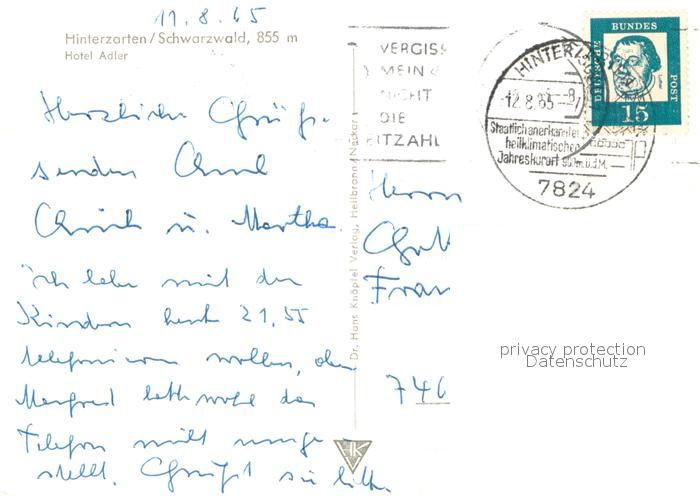 11.8.65
Hinterzarten / Schwarzwald, 855 m
Hotel Adler
Herzliche Grüße
senden
u. Martha.
ich habe mit den
Kindern heute 21,55
telefonieren wollen, aber
Manfred hatte wohl das
Telefon nicht umge-
stellt. Grüßt sie bitte
Dr. Hans Knöpfel Verlag, Heilbronn/Neckar
HK
VERGISS
MEIN
NICHT
DIE
EITZAHL
HINTERZARTEN
12.8.65-8
Staatlich anerkannter
heilklimatischer
Jahreskurort
7824
BUNDES
POST
DEUTSCHE
Luther
15
Herrn
Frau
746
privacy protection
Datenschutz